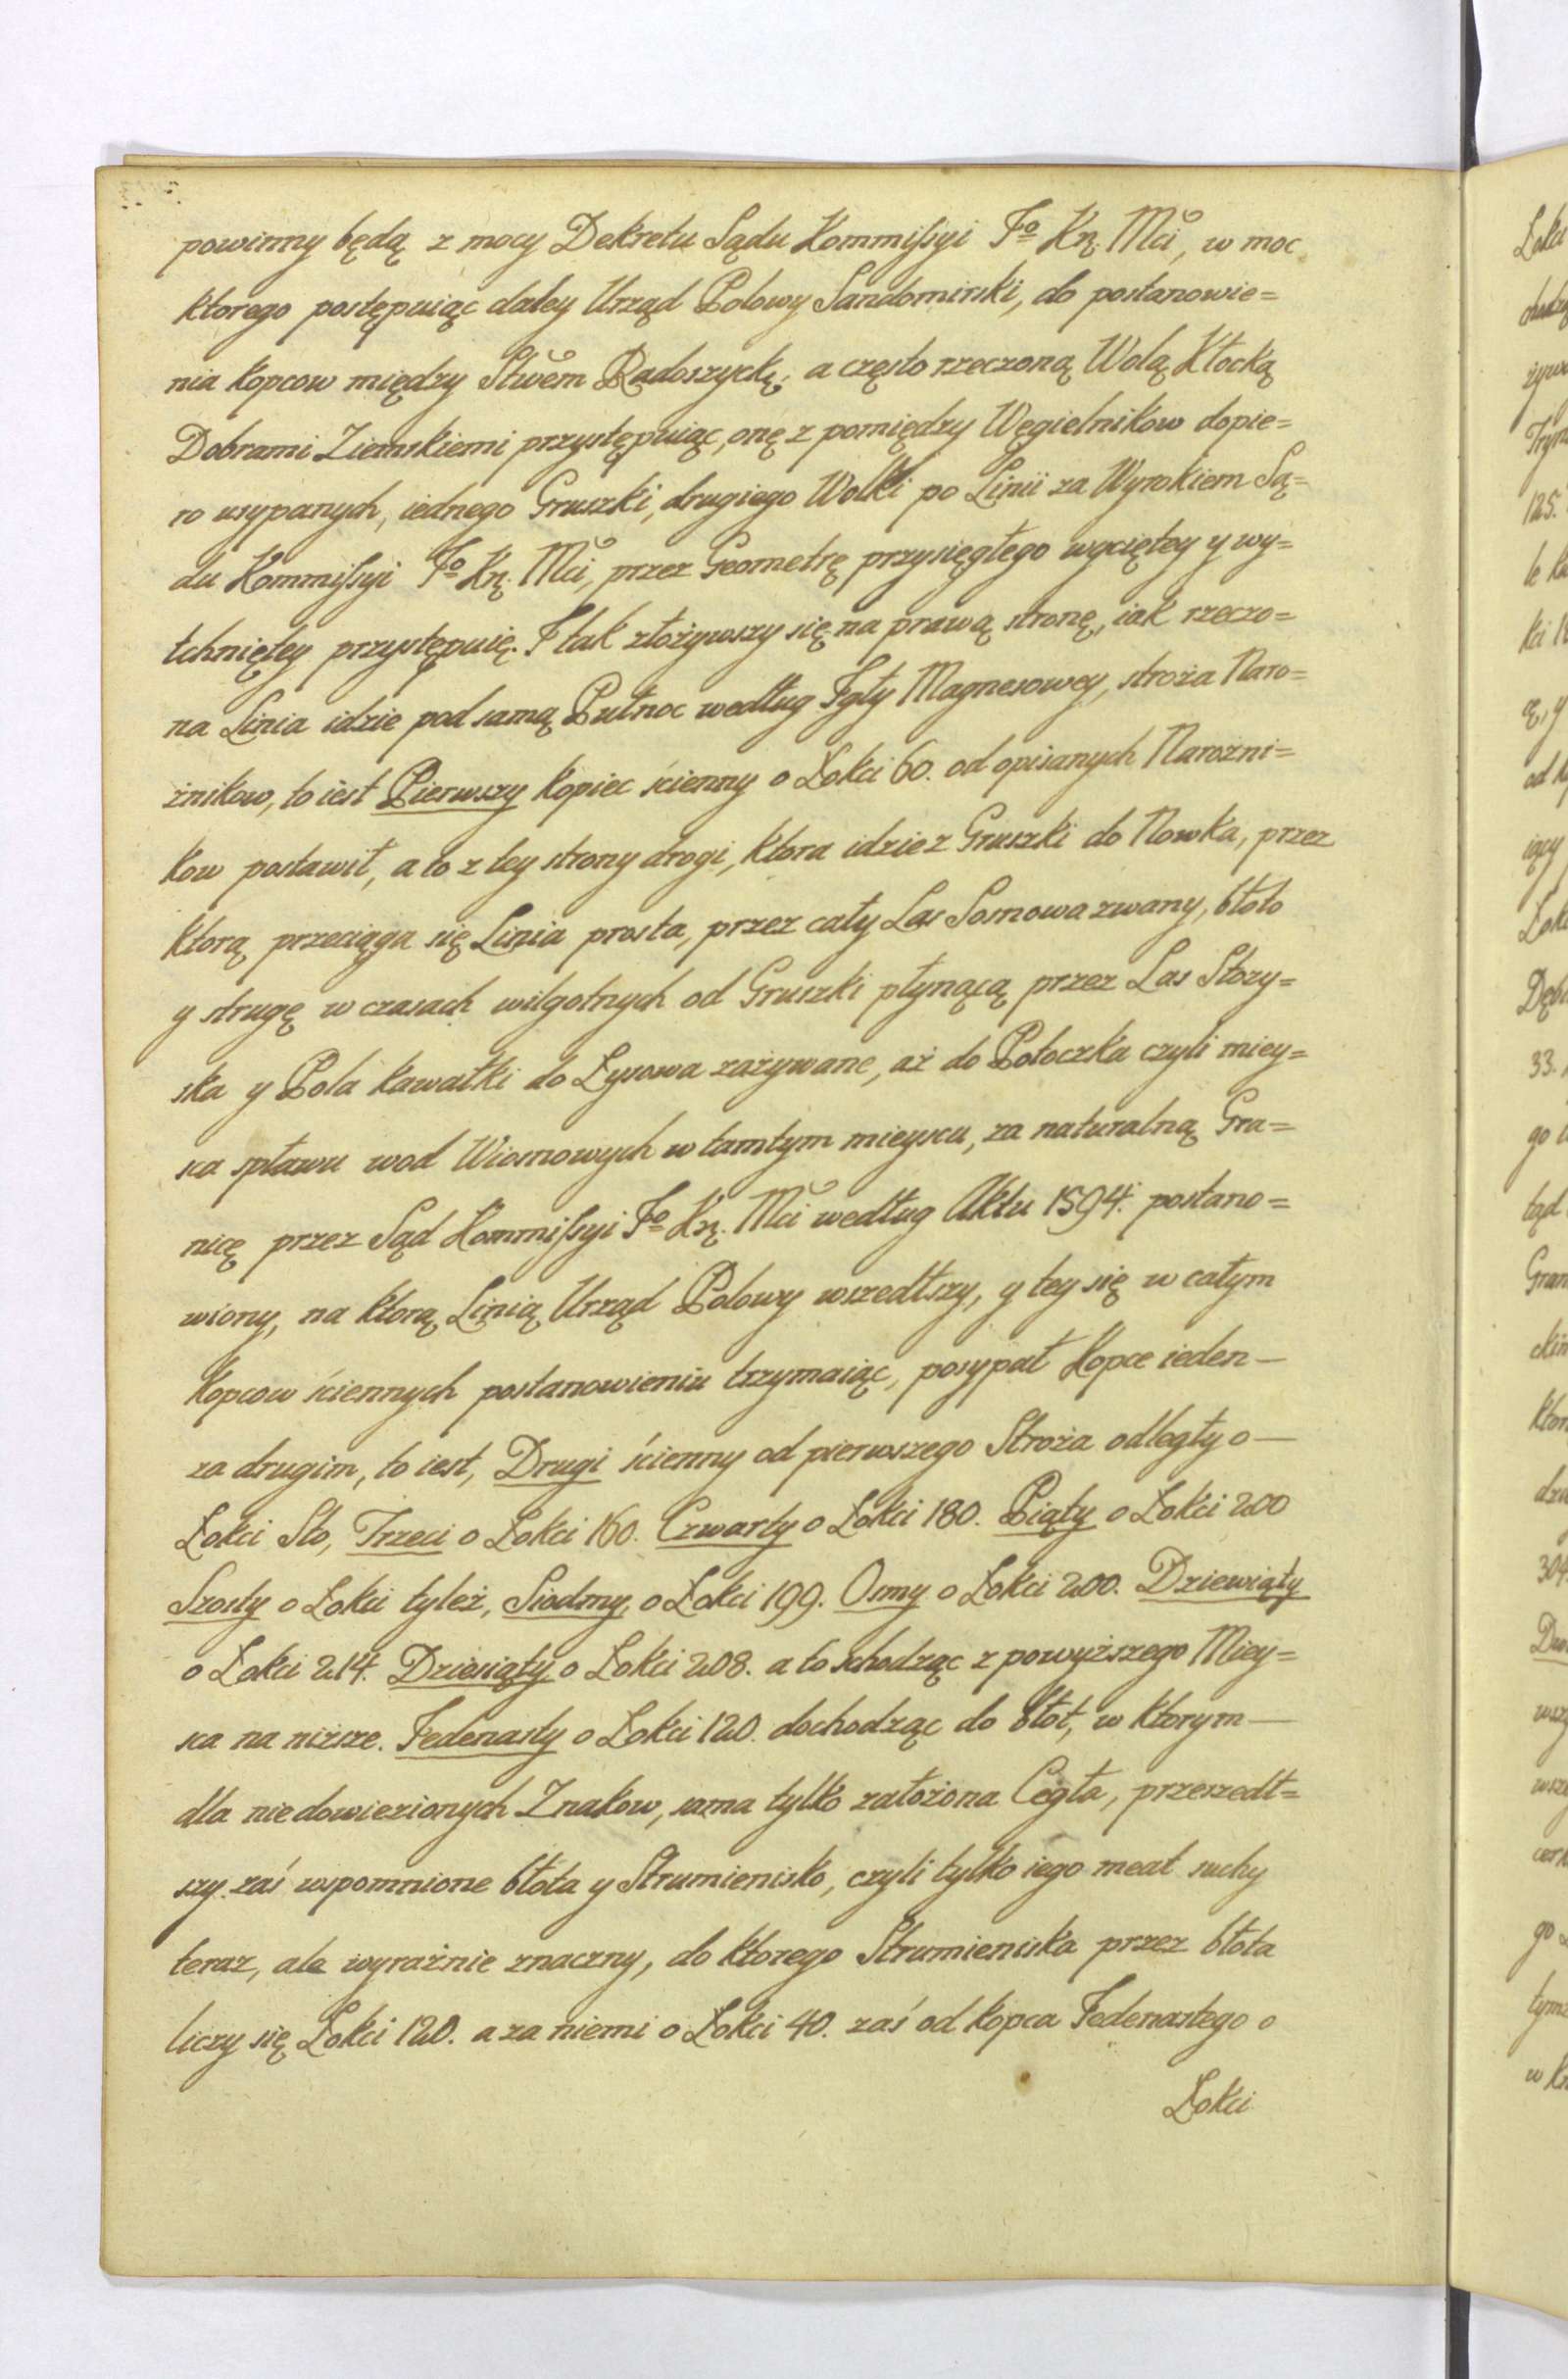 powinny będą z mocy Dekretu Sądu Kommissyi Jº Kṇ. Mci, w moc
ktorego postępuiąc daley Urząd Polowy Sandomirski, do postanowie=
nia kopcow między Stwem Radoszyckẹ, a często rzeczoną Wolą Kłocką
Dobrami Ziemskiemi przystępuiąc, onę z pomiędzy Węgielnikow dopie=
ro usypanych, iednego Gruszki, drugiego Wolki po Linii za Wyrokiem Są=
du Kommissyi Jº Kṇ. Mci, przez Geometrę przysięgłego wyciętey y wy=
tchniętey przystępuię. I tak złożywszy się na prawą stronę, iak rzeczo=
na Linia idzie pod samą Pułnoc według Igły Magnesowey, stroża Naro=
żnikow, to iest Pierwszy kopiec ścienny o Łokci 60. od opisanych Narożni=
kow postawił, a to z tey strony drogi, ktora idzie z Gruszki do Nowka, przez
ktorą przeciąga się Linia prosta, przez cały Las Sosnowa zwany, błoto
y strugę w czasach wilgotnych od Gruszki płynącą przez Las Stozy=
ska y Pola kawałki do Łysowa zażywane, aż do Potoczka czyli miey=
sca spławu wod Wiosnowych w tamtym mieyscu, za naturalną Gra=
nicę przez Sąd Kommissyi Jº Kṇ. Mci według Aktu 1594. postano=
wiony, na ktorą Linią Urząd Polowy wszedłszy, y tey się w całym
kopcow ściennych postanowieniu trzymaiąc, posypał Kopce ieden —
za drugim, to iest, Drugi ścienny od pierwszego Stroża odległy o —
Łokci Sto, Trzeci o Łokci 160. Czwarty o Łokci 180. Piąty o Łokci 200
Szosty o Łokci tyleż, Siodmy, o Łokci 199. Osmy o Łokci 200. Dziewiąty
o Łokci 214. Dziesiąty o Łokci 208. a to schodząc z powyższego Miey=
sca na niższe. Jedenasty o Łokci 120. dochodząc do błot, w ktorym —
dla niedowiezionych Znakow, sama tylko założona Cegła, przeszedł=
szy zaś wspomnione błota y Strumienisko, czyli tylko iego meat suchy
teraz, ale wyraźnie znaczny, do ktorego Strumieniska przez błota
liczy się Łokci 120. a za niemi o Łokci 40. zaś od kopca Jedenastego o
Łokci